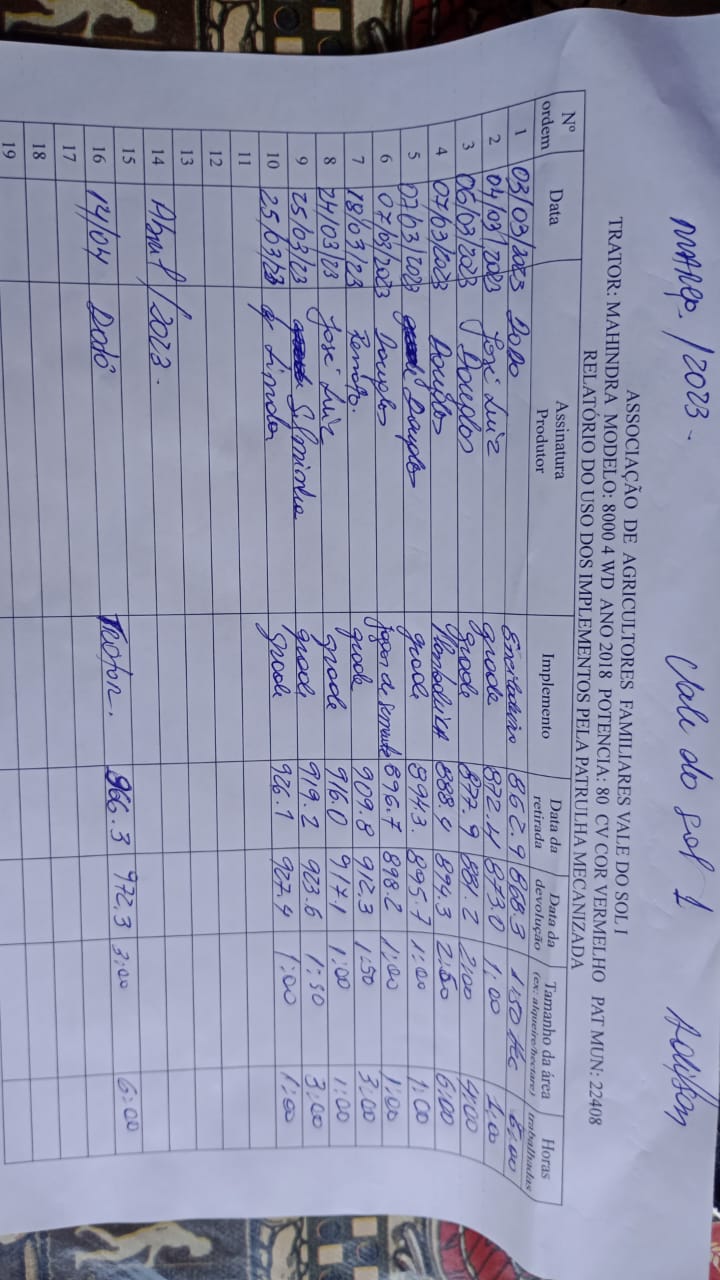 Março /2023 - Vale do sol 1 Adilson
ASSOCIAÇÃO DE AGRICULTORES FAMILIARES VALE DO SOL I
TRATOR: MAHINDRA MODELO: 8000 4 WD ANO 2018 POTENCIA: 80 CV COR VERMELHO PAT MUN: 22408
RELATÓRIO DO USO DOS IMPLEMENTOS PELA PATRULHA MECANIZADA
Nº ordem Data Assinatura Produtor Implemento Data da retirada Data da devolução Tamanho da área (ex: alqueire/hectare) Horas trabalhadas
1 03/03/2023 Dodo 862.9 868.3 1:50
2 04/03/2023 José Luiz grade 872.4 873.0 1:00 1:00
3 06/03/2023 Douglas grade 877.9 881.2 2:00 4:00
4 07/03/2023 Douglas 888.4 894.3 6:00
5 07/03/2023 Douglas grade 894.3. 895.7 1:00 1:00
6 07/03/2023 Douglas 896.7 898.2 1:00 1:00
7 18/03/23 Renato. grade 909.8 912.3 1:50 3:00
8 24/03/23 José Luiz grade 916.0 917.1 1:00 1:00
9 25/03/23 grade 919.2 923.6 1:30 3:00
10 25/03/23 grade 926.1 927.4 1:00 1:00
11
12
13
14 Abril/2023.
15
16 14/04 Dodô Trator. 966.3 972.3 3:00 6:00
17
18
19